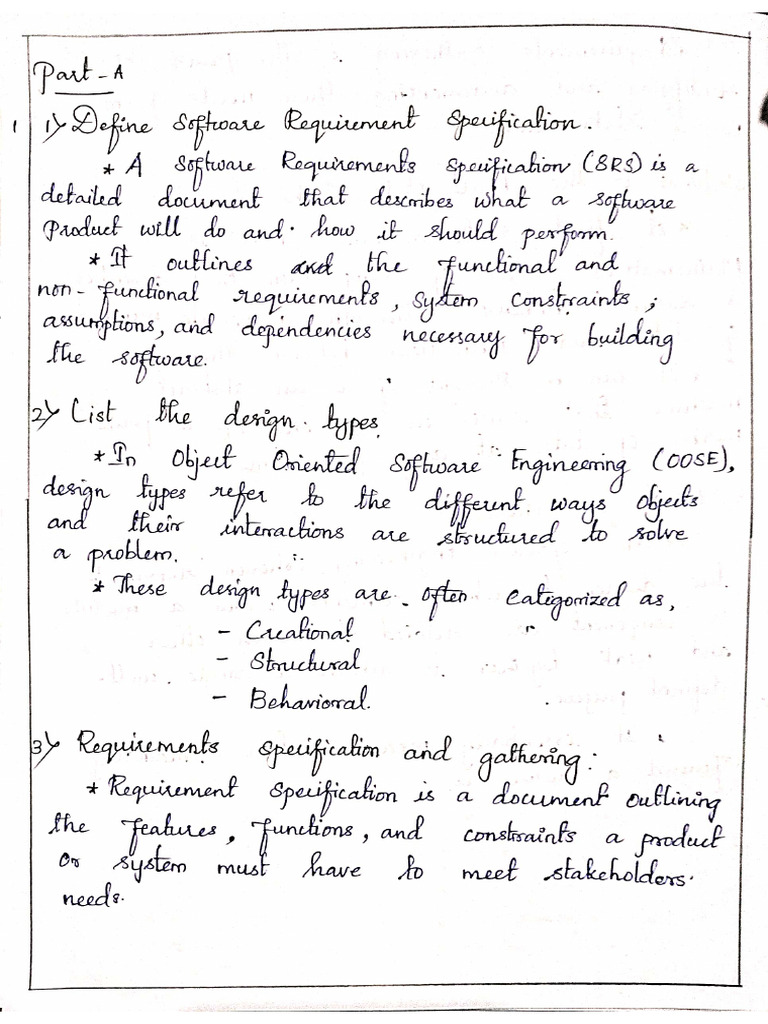 Part - A
1 1) Define Software Requirement Specification.
* A Software Requirements Specification (SRS) is a
detailed document that describes what a software
Product will do and how it should perform.
* It outlines and the functional and
non-functional requirements, System Constraints,
assumptions, and dependencies necessary for building
the software.
2) List the design types
* In Object Oriented Software Engineering (OOSE),
design types refer to the different ways objects
and their interractions are structured to solve
a problem.
* These design types are often categorized as,
- Creational
- Structural
- Behavioral.
3) Requirements Specification and gathering:
* Requirement Specification is a document outlining
the features, functions, and constraints a product
or system must have to meet stakeholders
needs.